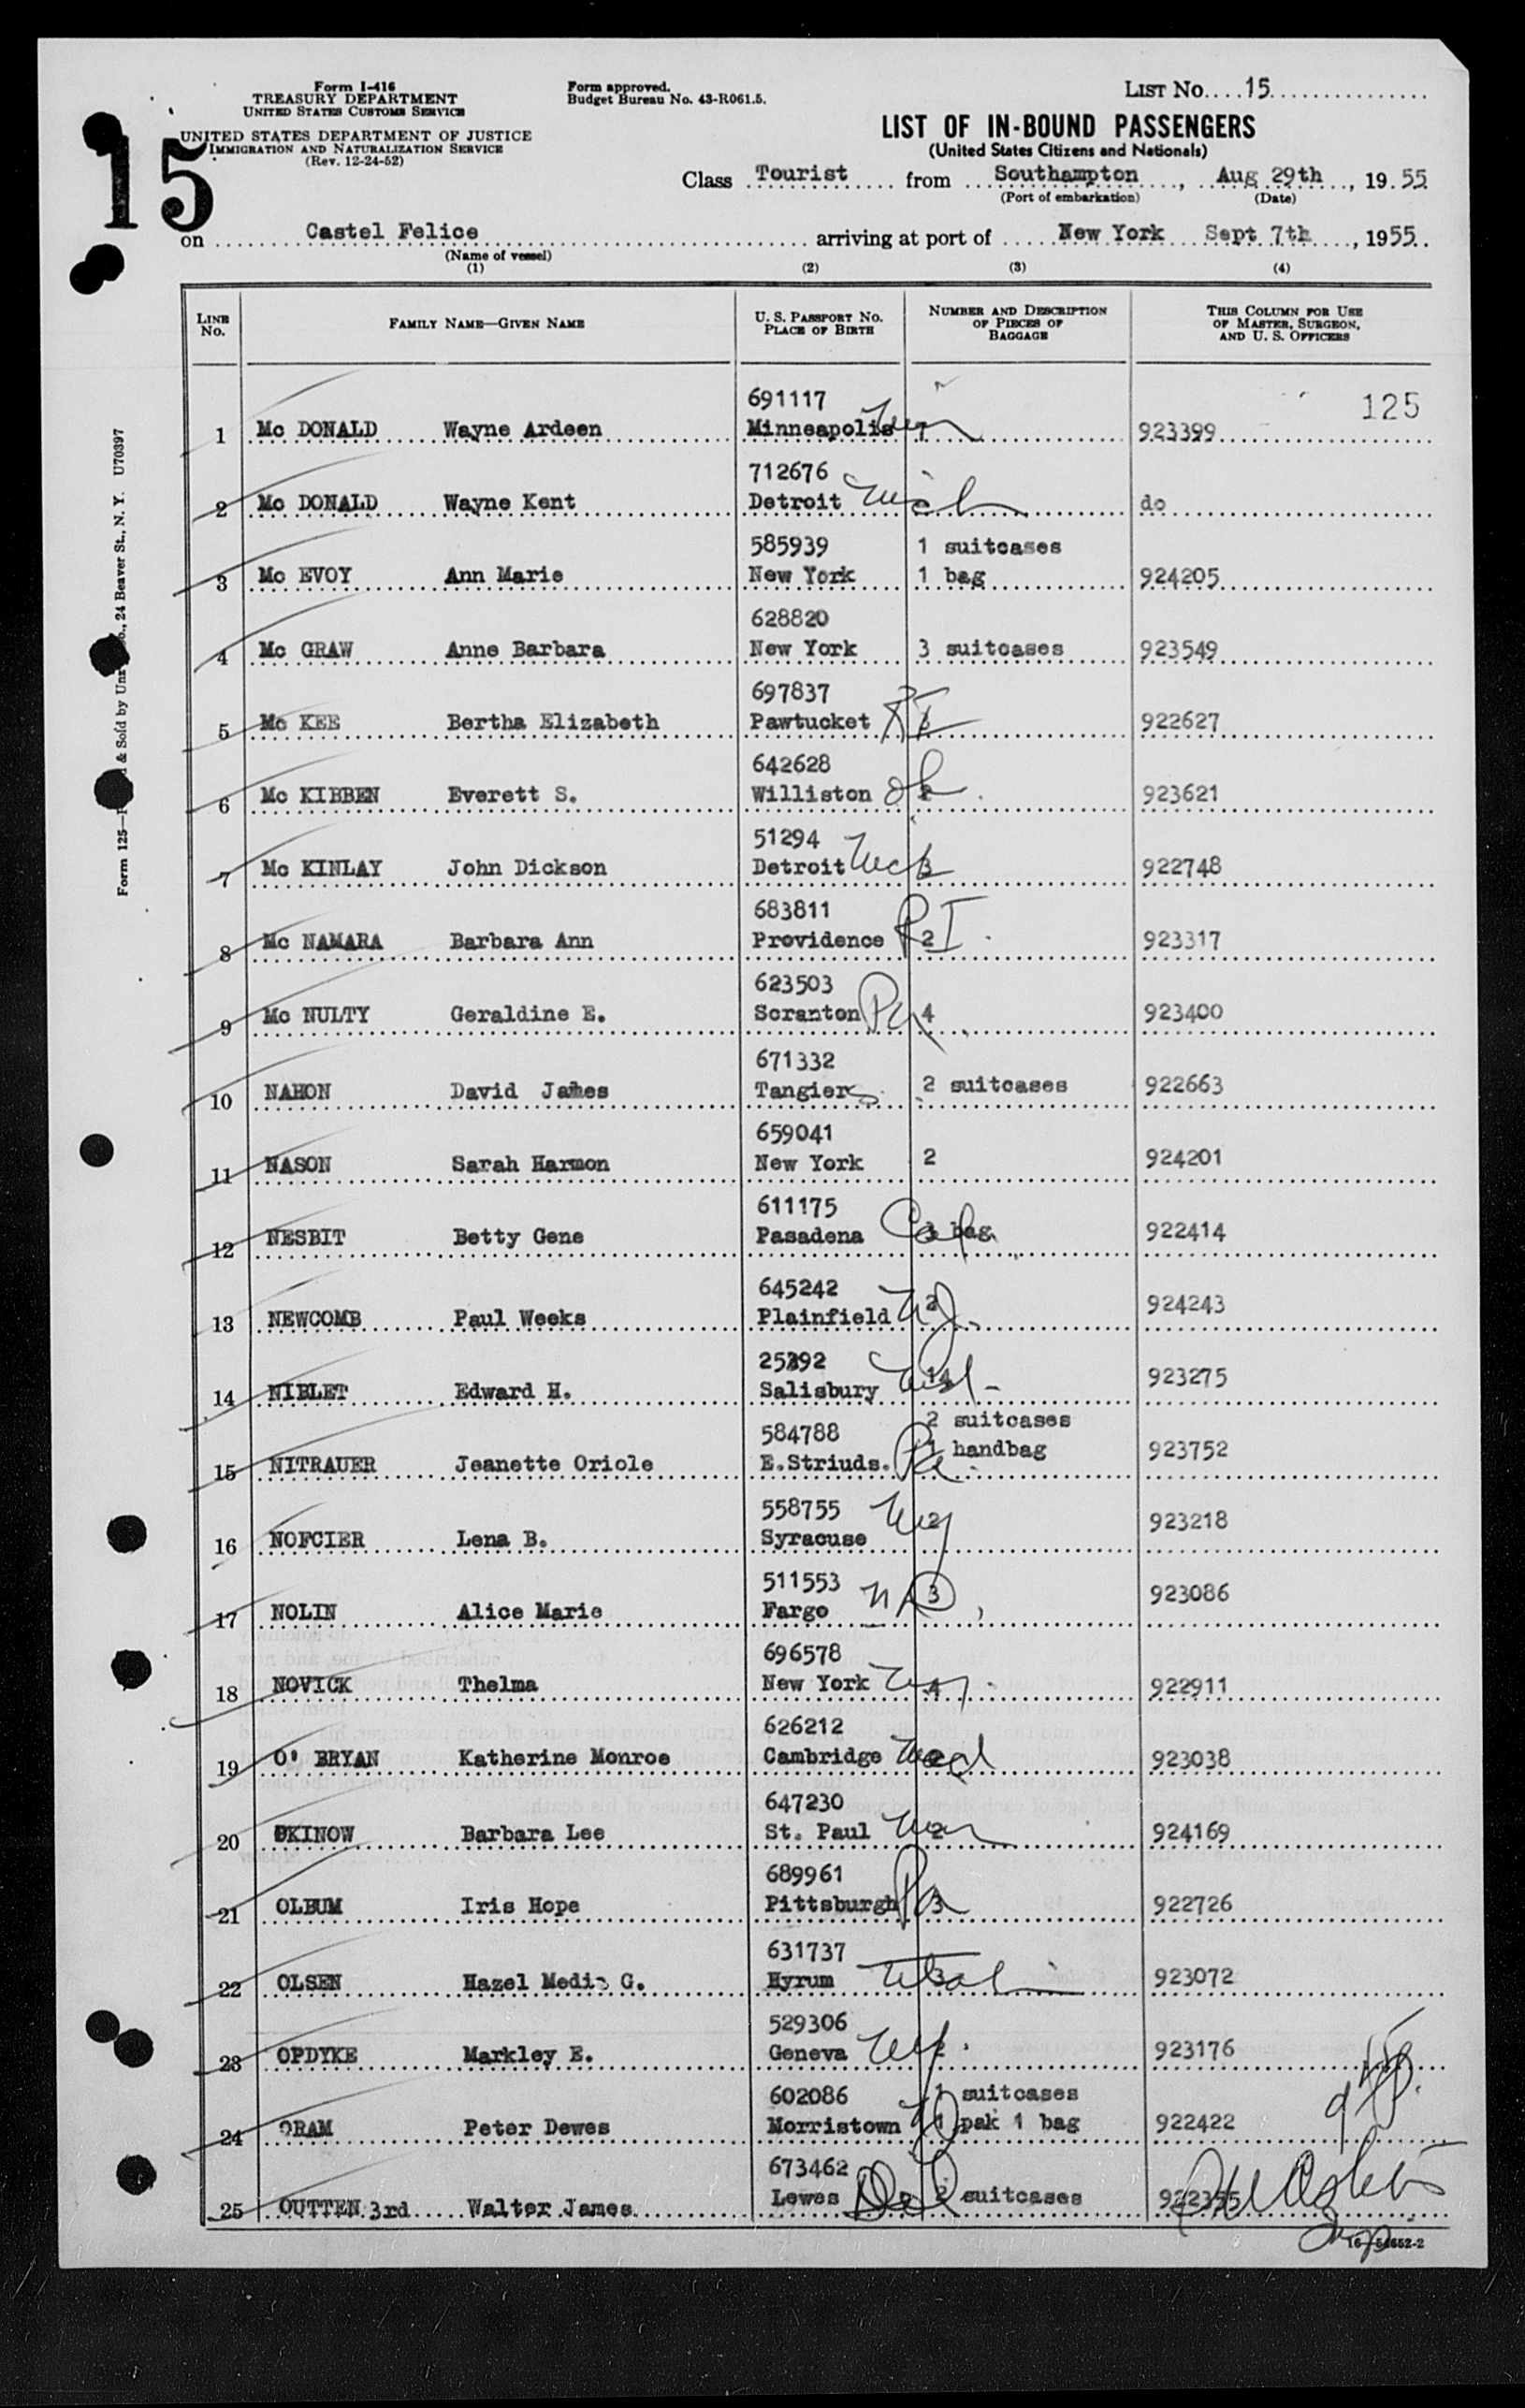 Form I-416
TREASURY DEPARTMENT
UNITED STATES CUSTOMS SERVICE
UNITED STATES DEPARTMENT OF JUSTICE
IMMIGRATION AND NATURALIZATION SERVICE
(Rev. 12-24-52)
Form approved.
Budget Bureau No. 43-R061.5.
LIST No. 15
15
LIST OF IN-BOUND PASSENGERS
(United States Citizens and Nationals)
Class Tourist from Southampton, Aug 29th, 1955
(Port of embarkation) (Date)
on Castel Felice arriving at port of New York Sept 7th, 1955
(Name of vessel)
(1) (2) (3) (4)
LINE No. FAMILY NAME—GIVEN NAME U. S. PASSPORT No. PLACE OF BIRTH NUMBER AND DESCRIPTION OF PIECES OF BAGGAGE THIS COLUMN FOR USE OF MASTER, SURGEON, AND U. S. OFFICERS
125
691117
1 Mc DONALD Wayne Ardeen Minneapolis 7 923399
712676
2 Mc DONALD Wayne Kent Detroit Mich do
585939 1 suitcases
3 Mc EVOY Ann Marie New York 1 bag 924205
628820
4 Mc GRAW Anne Barbara New York 3 suitcases 923549
697837
5 Mc KEE Bertha Elizabeth Pawtucket RI 922627
642628
6 Mc KIBBEN Everett S. Williston 923621
51294
7 Mc KINLAY John Dickson Detroit Mich 3 922748
683811
8 Mc NAMARA Barbara Ann Providence RI 2 923317
623503
9 Mc NULTY Geraldine E. Scranton Pa 4 923400
671332
10 NAHON David James Tangiers 2 suitcases 922663
659041
11 NASON Sarah Harmon New York 2 924201
611175
12 NESBIT Betty Gene Pasadena Cal 3 bag 922414
645242
13 NEWCOMB Paul Weeks Plainfield NJ 2 924243
14 NIBLET Edward H. Salisbury 923275
584788 2 suitcases
15 NITRAUER Jeanette Oriole E.Striuds. Pa 1 handbag 923752
558755
16 NOFCIER Lena B. Syracuse NY 2 923218
511553
17 NOLIN Alice Marie Fargo ND 3 923086
696578
18 NOVICK Thelma New York NY 4 922911
626212
19 O' BRYAN Katherine Monroe Cambridge 923038
647230
20 OKINOW Barbara Lee St. Paul 2 924169
689961
21 OLBUM Iris Hope Pittsburgh Pa 3 922726
631737
22 OLSEN Hazel G. Hyrum Utah 3 923072
529306
23 OPDYKE Markley E. Geneva NY 923176
602086 1 suitcases
24 ORAM Peter Dewes Morristown NJ 1 pak 1 bag 922422
673462
25 OUTTEN 3rd Walter James Lewes Del 2 suitcases
Form 125 & Sold by 24 Beaver St., N. Y. U70397